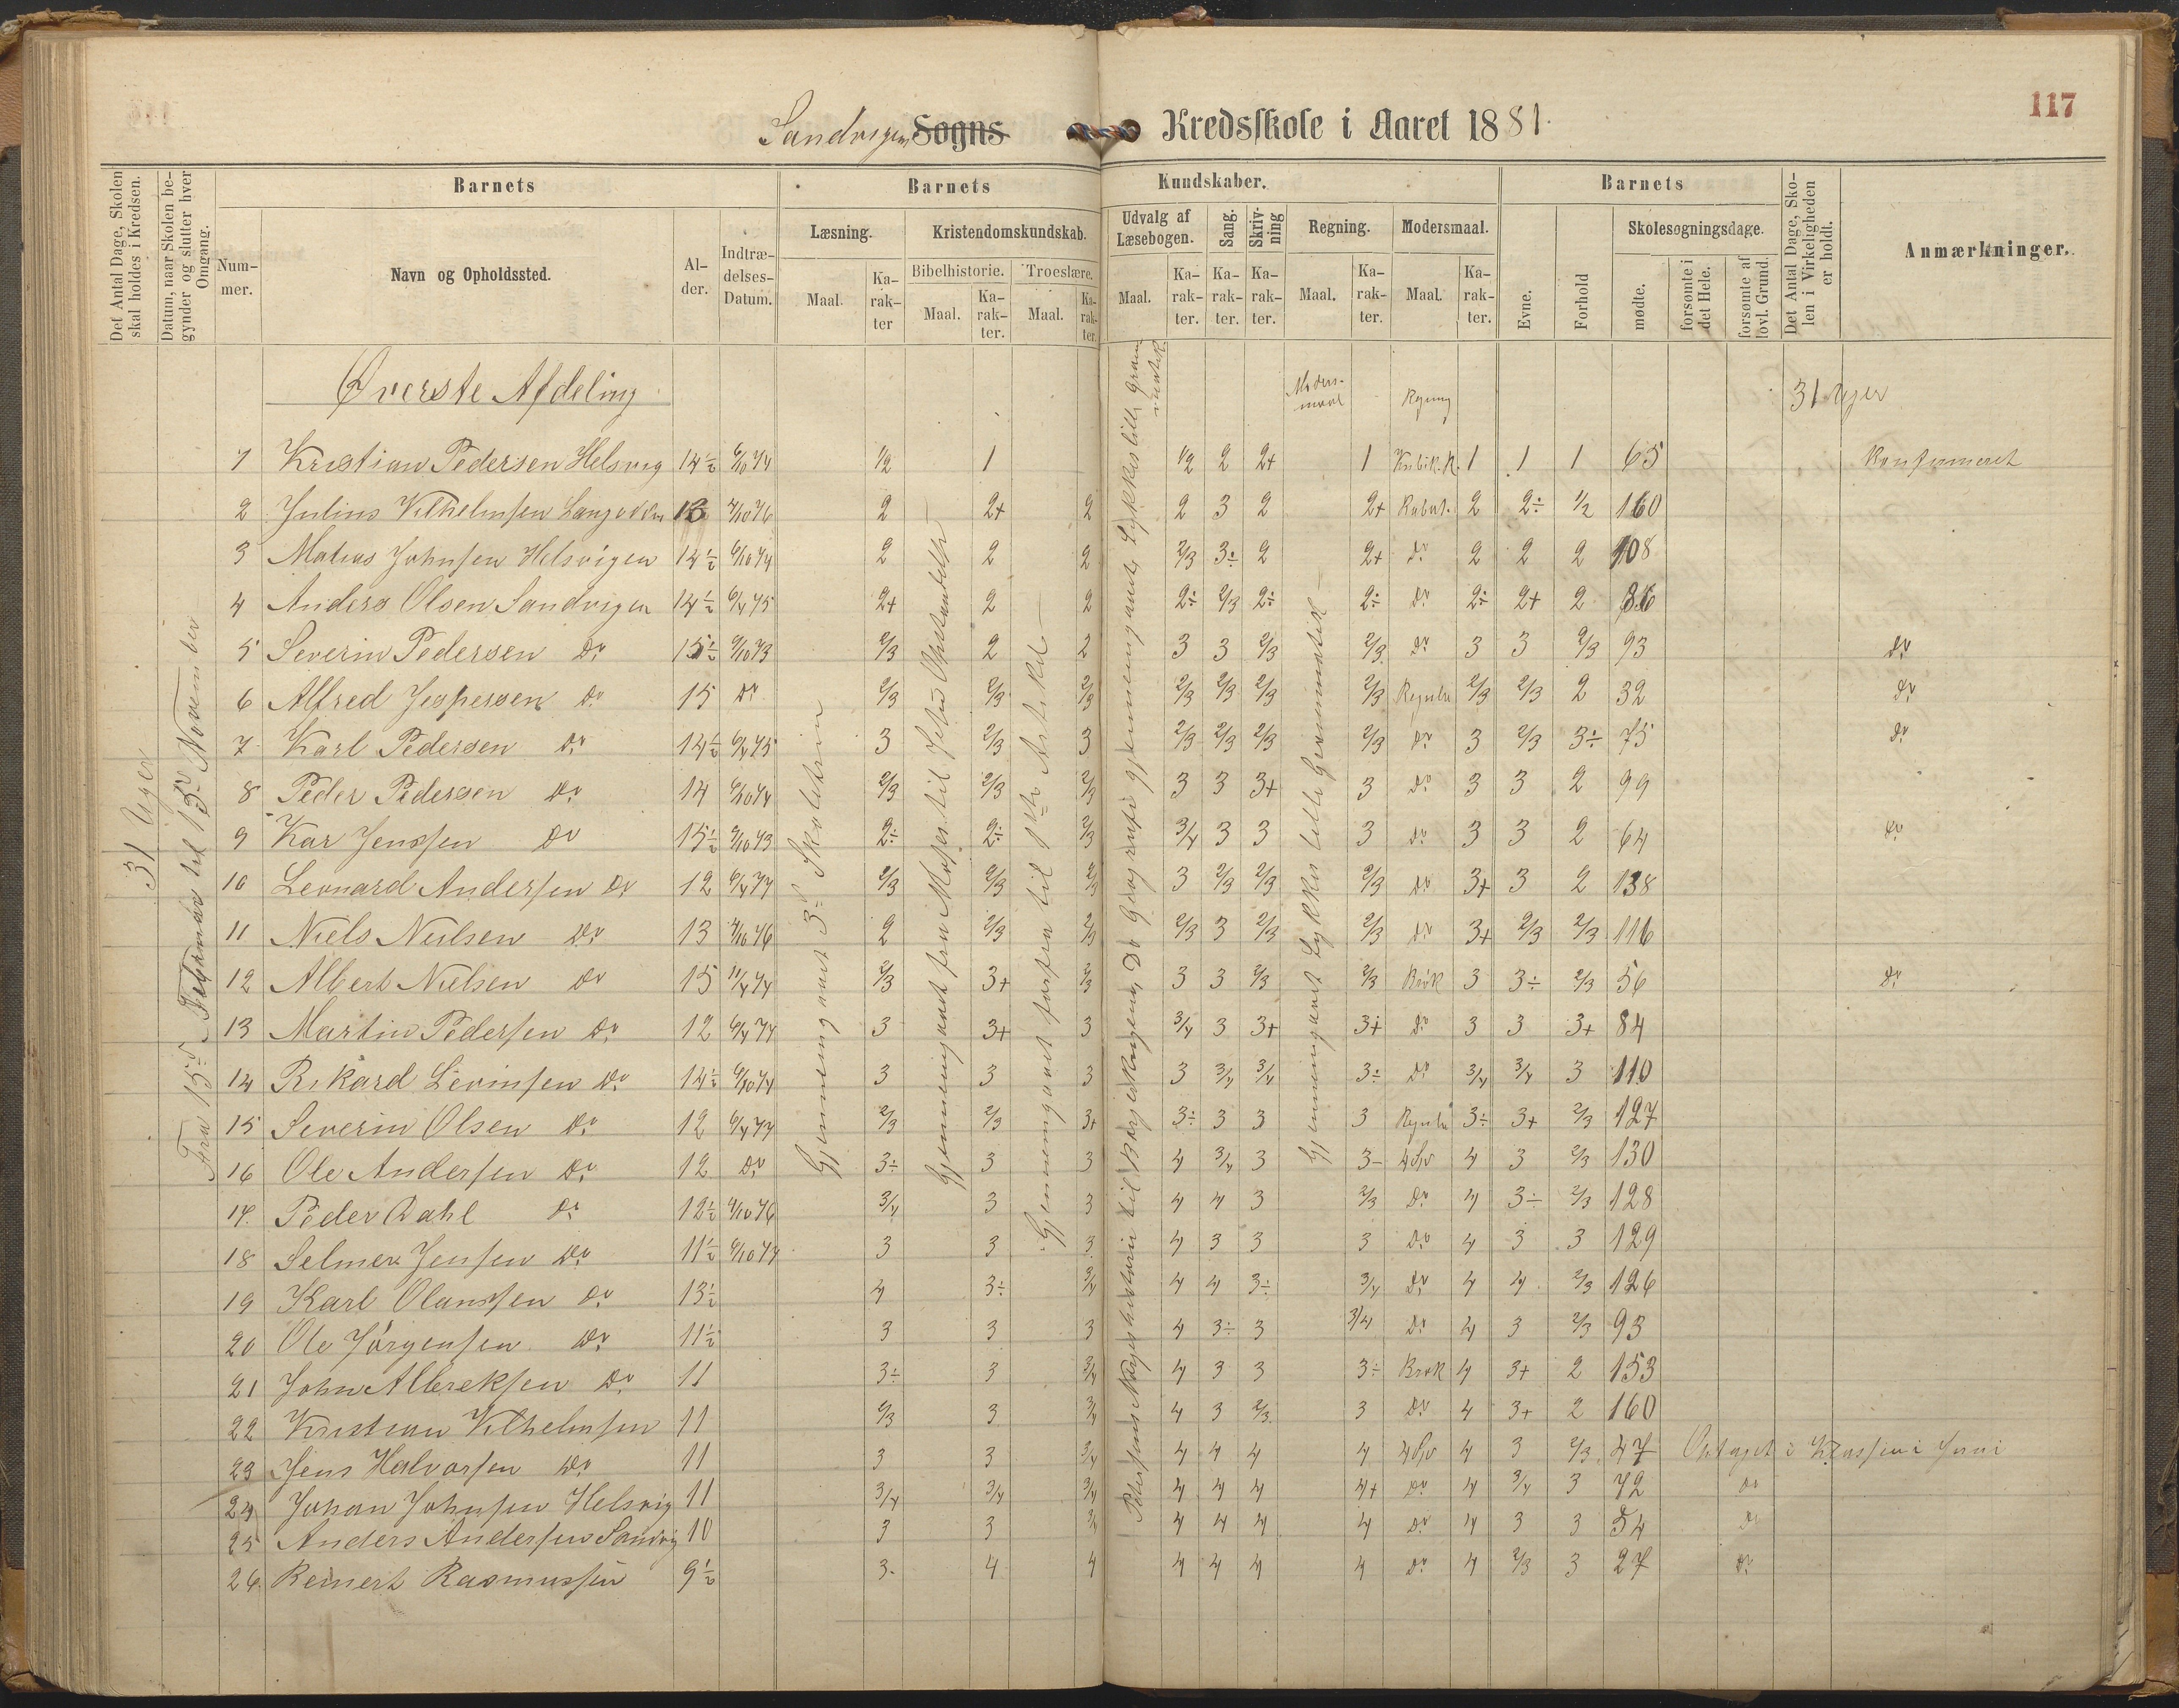 117
Sandvigen Sogns Kredsskole i Aaret 1881.
Det Antal Dage, Skolen skal holdes i Kredsen.
Datum, naar Skolen begynder og slutter hver Omgang.
Barnets
Nummer.
Navn og Opholdssted.
Alder.
Indtrædelses-Datum.
Barnets Kundskaber.
Læsning.
Maal.
Karakter
Kristendomskundskab.
Bibelhistorie.
Maal.
Karakter.
Troeslære.
Maal.
Karakter.
Udvalg af Læsebogen.
Maal.
Karakter.
Sang.
Karakter.
Skrivning
Karakter.
Regning.
Maal.
Karakter.
Modersmaal.
Maal.
Karakter.
Barnets
Evne.
Forhold
Skolesøgningsdage.
mødte.
forsømte i det Hele.
forsømte af lovl. Grund.
Det Antal Dage, Skolen i Virkeligheden er holdt.
Anmærkninger.
Øverste Afdeling
Modersmaal
Regning
31 Uger
31 Uger
Fra 15de Februar til 15de November
Gjennemgaaet 3de Skoletrin
Gjennemgaaet fra Moses til Jesu Opstandelse
Gjennemgaaet forfra til 1ste Artikel
Gjennemgaaet Lykkes lille Grammatik
1 Kristian Pedersen Helsvig 14½ 6/10 74 1/2 1 1/2 2 2+ 1 Kubik.R. 1 1 1 65 Konfirmeret
2 Julius Vilhelmsen 13 4/10 76 2 2+ 2 2 3 2 2+ Rabat. 2 2÷ 1/2 160
3 Matias Johnsen Helsvigen 14½ 6/10 74 2 2 2 2/3 3÷ 2 2+ do 2 2 2 108
4 Anders Olsen Sandvigen 14½ 6/4 75 2+ 2 2 2÷ 2/3 2÷ 2÷ do 2÷ 2+ 2 86
5 Severin Pedersen do 15½ 9/10 73 2/3 2 2 3 3 2/3 2/3 do 3 3 2/3 93 do
6 Alfred Jespersen do 15 do 2/3 2/3 2/3 2/3 2/3 2/3 2/3 Regula 2/3 2/3 2 32 do
7 Karl Pedersen do 14½ 6/4 75 3 2/3 3 2/3 2/3 2/3 2/3 do 3 2/3 3÷ 75 do
8 Peder Pedersen do 14 6/10 74 2/3 2/3 2/3 3 3 3+ 3 do 3 3 2 99
9 Kar Jenssen do 15½ 9/10 73 2÷ 2÷ 2/3 3/4 3 3 3 do 3 3 2 64 do
10 Leonard Andersen do 12 6/4 77 2/3 2/3 2/3 3 2/3 2/3 2/3 do 3+ 3 2 138
11 Niels Nielsen do 13 4/10 76 2 2/3 2/3 2/3 3 2/3 2/3 do 3+ 2/3 2/3 116
12 Albert Nielsen do 15 11/4 74 2/3 3+ 2/3 3 3 2/3 2/3 Brøk 3 3÷ 2/3 56 do
13 Martin Pedersen do 12 6/4 77 3 3+ 3 3/4 3 3+ 3+ do 3 3 3+ 84
14 Rikard Levinsen do 14½ 6/10 74 3 3 3 3 3/4 3/4 3÷ do 3/4 3/4 3 110
15 Severin Olsen do 12 6/4 77 2/3 2/3 3+ 3÷ 3 3 3 Regula 3÷ 3+ 2/3 127
16 Ole Andersen do 12 do 3÷ 3 3 4 3/4 3 3- 4 Sp 4 3 2/3 130
17. Peder Dahl do 12½ 4/10 76 3/4 3 3 4 4 3 2/3 do 4 3÷ 2/3 128
18 Selmer Jensen do 11½ 6/10 77 3 3 3 4 3 3 3 do 4 3 3 129
19 Karl Olanssen do 13½ 4 3÷ 3/4 4 4 3÷ 3/4 do 4 4 2/3 126
20 Ole Jörgensen do 11½ 3 3 3 4 3÷ 3 3/4 do 4 3 2/3 93
21 John Albreksen do 11 3÷ 3 3/4 4 3 3 3÷ Brøk 4 3+ 2 153
22 Kristian Vilhelmsen 11 2/3 3 3/4 4 3 2/3 3 do 4 3+ 2 160
23 Jens Halvorsen do 11 3 3 3/4 4 4 4 4 4 Sp 4 3 2/3 47 Optaget i Klassen i Juni
24 Johan Johnsen Helsvig 11 3/4 3/4 3/4 4 4 4 4+ do 4 3/4 3 72 do
25 Anders Andersen Sandvig 10 3 3 3/4 4 4 4 4 do 4 3 3 54 do
26. Reinert Rasmussen 9½ 3. 4 4 4 4 4 4 do 4 2/3 3 27 do